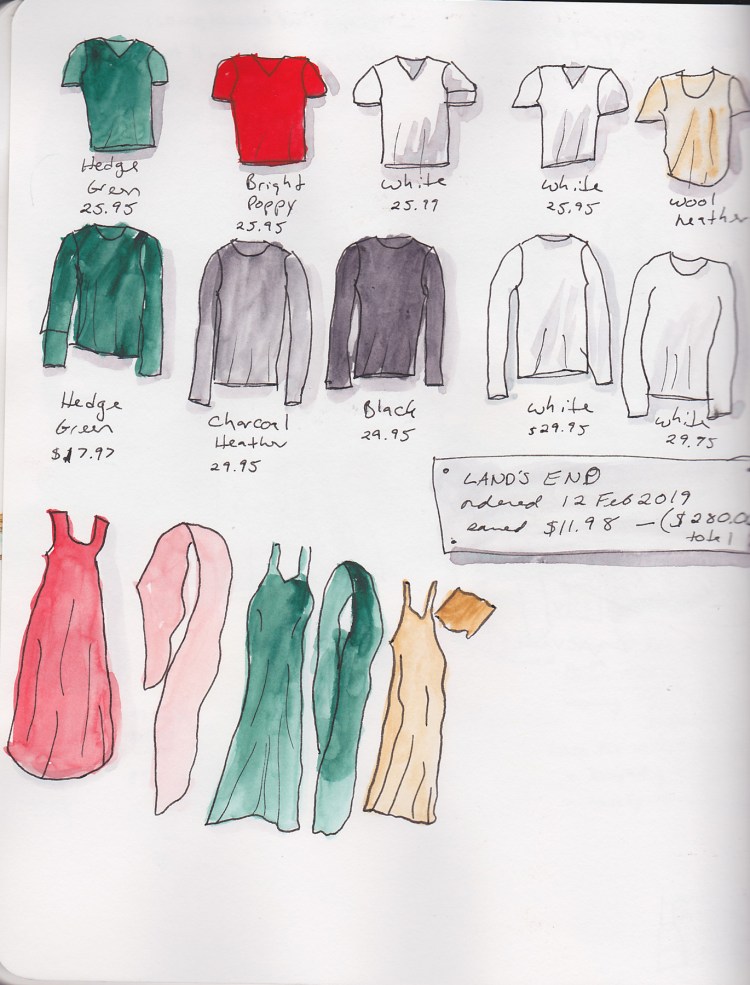 Hedge
Green
25.95
Bright
Poppy
25.95
White
25.99
White
25.95
wool
heather
Hedge
Green
$17.97
Charcoal
Heather
29.95
Black
29.95
White
$29.95
White
29.95
LAND'S END
ordered 12 Feb 2019
saved $11.98 — ($280.00
total